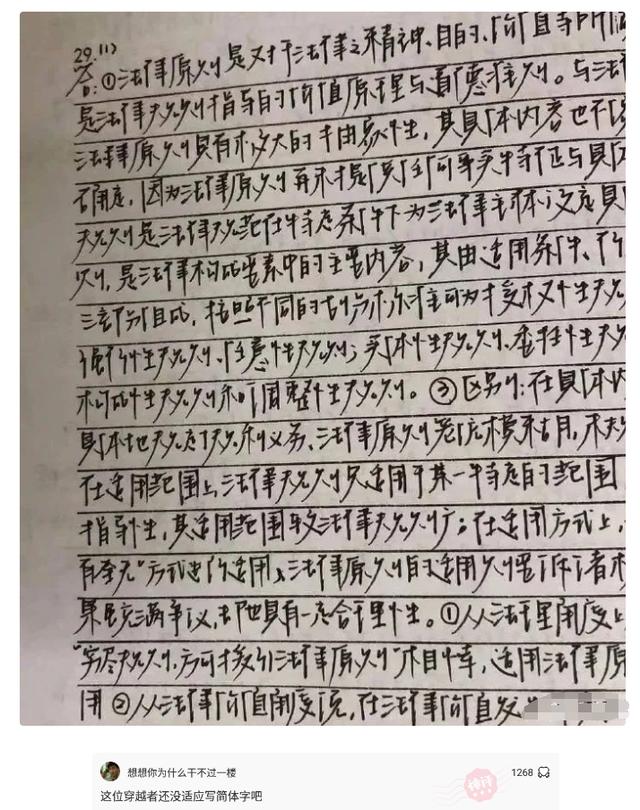 29.(1)
答：①法律原则是对于法律之精神、目的、价值等所
是法律规则指导的价值原理与道德准则。与法
法律原则具有较大的自由裁量性，其具体内容也不
确定，因为法律原则再不是任何事实特征与具
规则是法律规范在特定条件下为法律主体设定具
则，是法律构成要素中的主要内容，其由适用条件、行
三部分组成，按照不同的划分标准可为授权性规
强行性规则、任意性规则；实体性规则、委任性规
构成性规则和调整性规则。③区别：在具体内
具体地规定了权利义务、法律原则笼统模糊，未
在适用范围上，法律规则只适用于某一特定的范围
指导性，其适用范围较法律规则广；在适用方式上，
有全无"方式进行适用，法律原则的适用则
果虽充满争议，却也具有一定合理性。①从法理角度上
"穷尽规则，方可援引法律原则"相悖，适用法律原
用②从法律价值角度说，在法律价值发
想想你为什么干不过一楼
1268
这位穿越者还没适应写简体字吧
神评